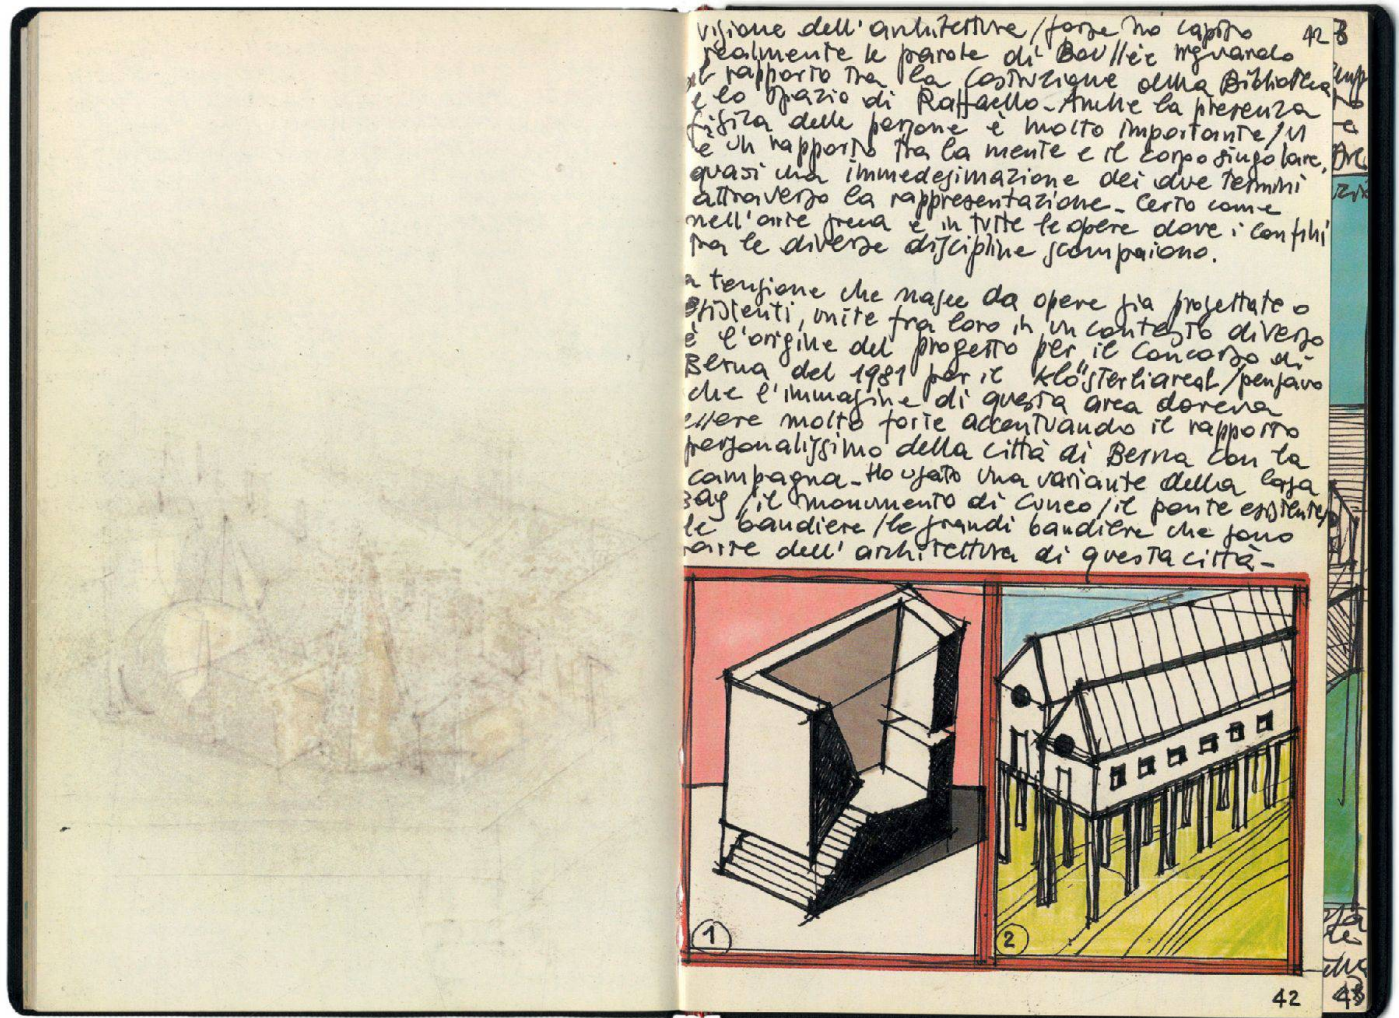 visione dell'architettura/forse ho capito
realmente le parole di Boullée riguardo
al rapporto tra la costruzione della Biblioteca
e lo spazio di Raffaello-Anche la presenza
fisica delle persone è molto importante/
è un rapporto tra la mente e il corpo singolare,
quasi una immedesimazione dei due termini
attraverso la rappresentazione-Certo come
nell'arte greca e in tutte le opere dove i confini
tra le diverse discipline scompaiono.
a tensione che nasce da opere già progettate o
esistenti, unite fra loro in un contesto diverso
è l'origine del progetto per il Concorso di
Berna del 1981 per il Klösterliareal/pensavo
che l'immagine di questa area doveva
essere molto forte accentuando il rapporto
personalissimo della città di Berna con la
campagna-Ho usato una variante della Casa
BAY/il monumento di Cuneo/il ponte esistente,
le bandiere/le grandi bandiere che sono
parte dell'architettura di questa città-
1
2
42
42
43